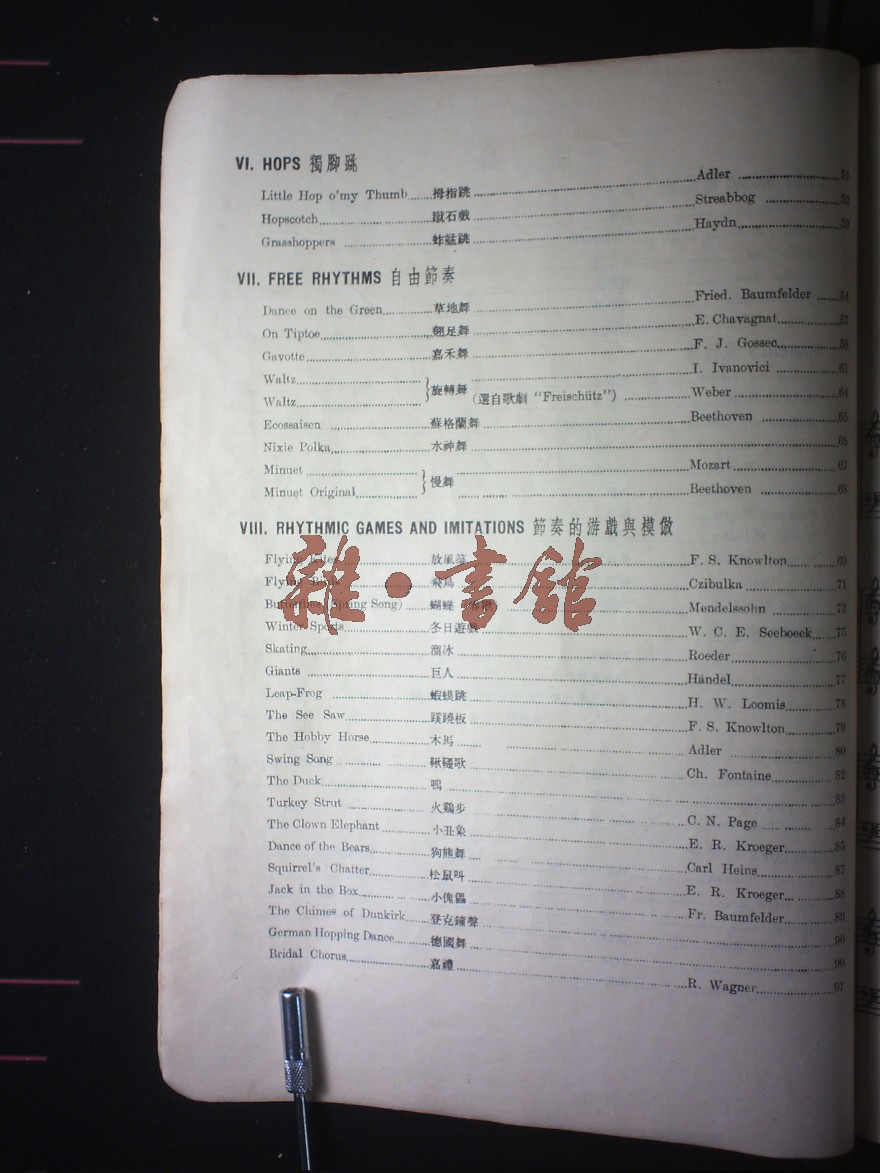 VI. HOPS 獨腳跳
Little Hop o'my Thumb 拇指跳 Adler 51
Hopscotch 蹴石戲 Streabbog 52
Grasshoppers 蚱蜢跳 Haydn 53
VII. FREE RHYTHMS 自由節奏
Dance on the Green 草地舞 Fried. Baumfelder 54
On Tiptoe 翹足舞 E. Chavagnat 57
Gavotte 嘉禾舞 F. J. Gossec 58
Waltz 旋轉舞 I. Ivanovici 61
Waltz (選自歌劇 "Freischütz") Weber 64
Ecossaisen 蘇格蘭舞 Beethoven 65
Nixie Polka 水神舞 66
Minuet 慢舞 Mozart 67
Minuet Original Beethoven 68
VIII. RHYTHMIC GAMES AND IMITATIONS 節奏的游戲與模倣
Flying Kites 放風箏 F. S. Knowlton 69
Flying Birds 飛鳥 Czibulka 71
Butterflies (Spring Song) 蝴蝶 Mendelssohn 73
Winter Sports 冬日遊戲 W. C. E. Seeboeck 75
Skating 溜冰 Roeder 76
Giants 巨人 Händel 77
Leap-Frog 蝦蟆跳 H. W. Loomis 78
The See Saw 蹺板 F. S. Knowlton 79
The Hobby Horse 木馬 Adler 80
Swing Song 鞦韆歌 Ch. Fontaine 82
The Duck 鴨 83
Turkey Strut 火鷄步 C. N. Page 84
The Clown Elephant 小丑象 E. R. Kroeger 85
Dance of the Bears 狗熊舞 Carl Heins 87
Squirrel's Chatter 松鼠叫 E. R. Kroeger 88
Jack in the Box 小傀儡 Fr. Baumfelder 89
The Chimes of Dunkirk 登克鐘聲 90
German Hopping Dance 德國舞 90
Bridal Chorus 嘉禮 R. Wagner 91
雜·書館